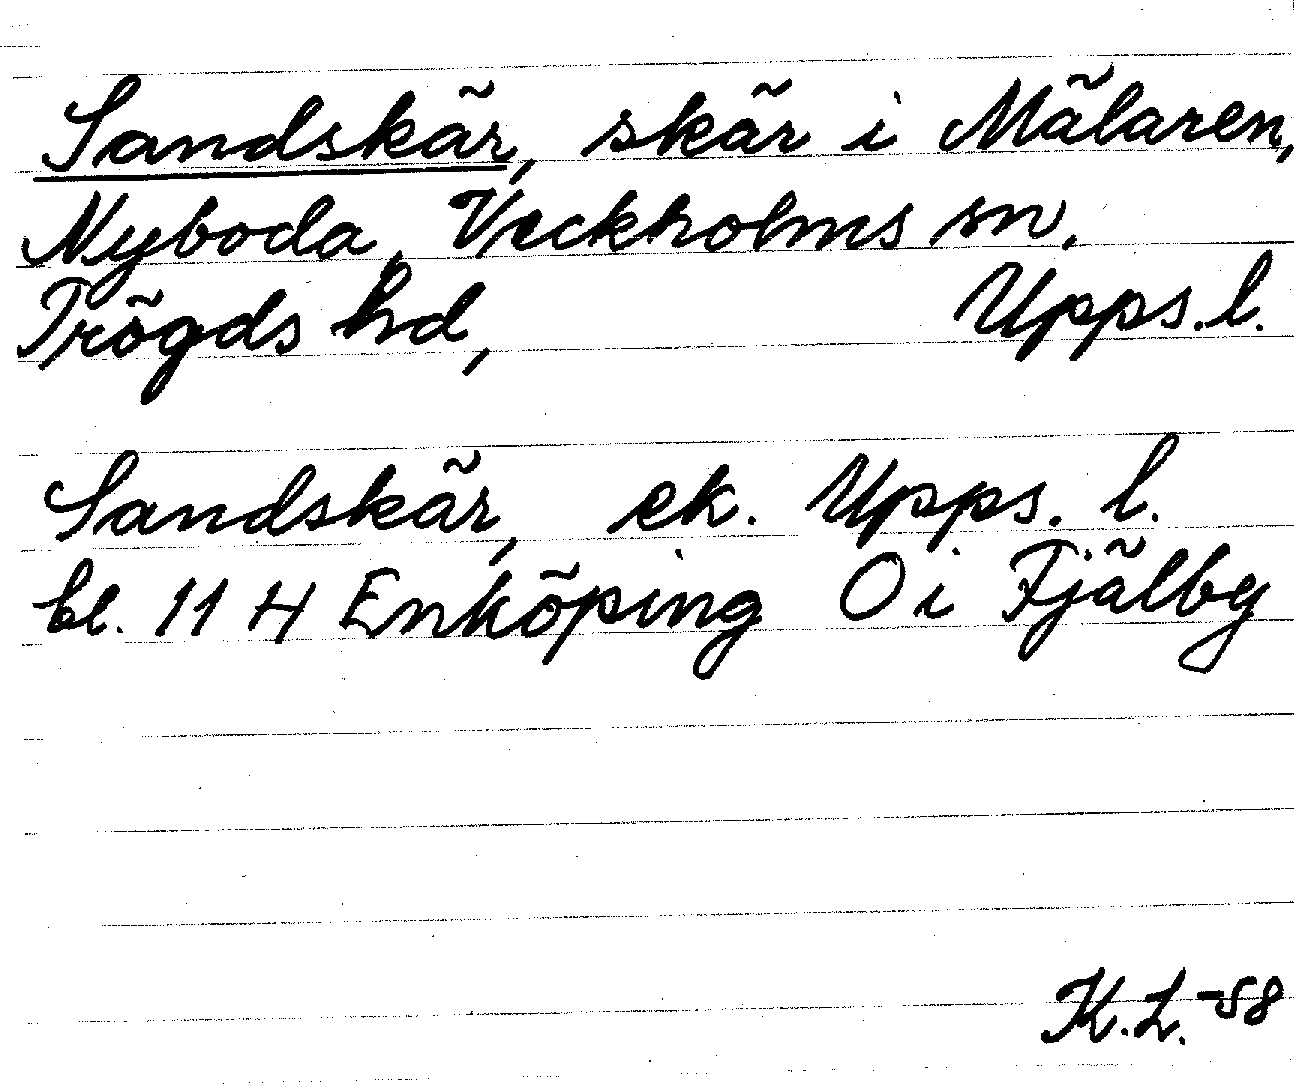 Sandskär, skär i Mälaren,
Nyboda, Veckholms sn.
Trögds hd, Upps.l.
Sandskär, ek. Upps. l.
bl. 11 H Enköping O i Fjälby
K.L.-58